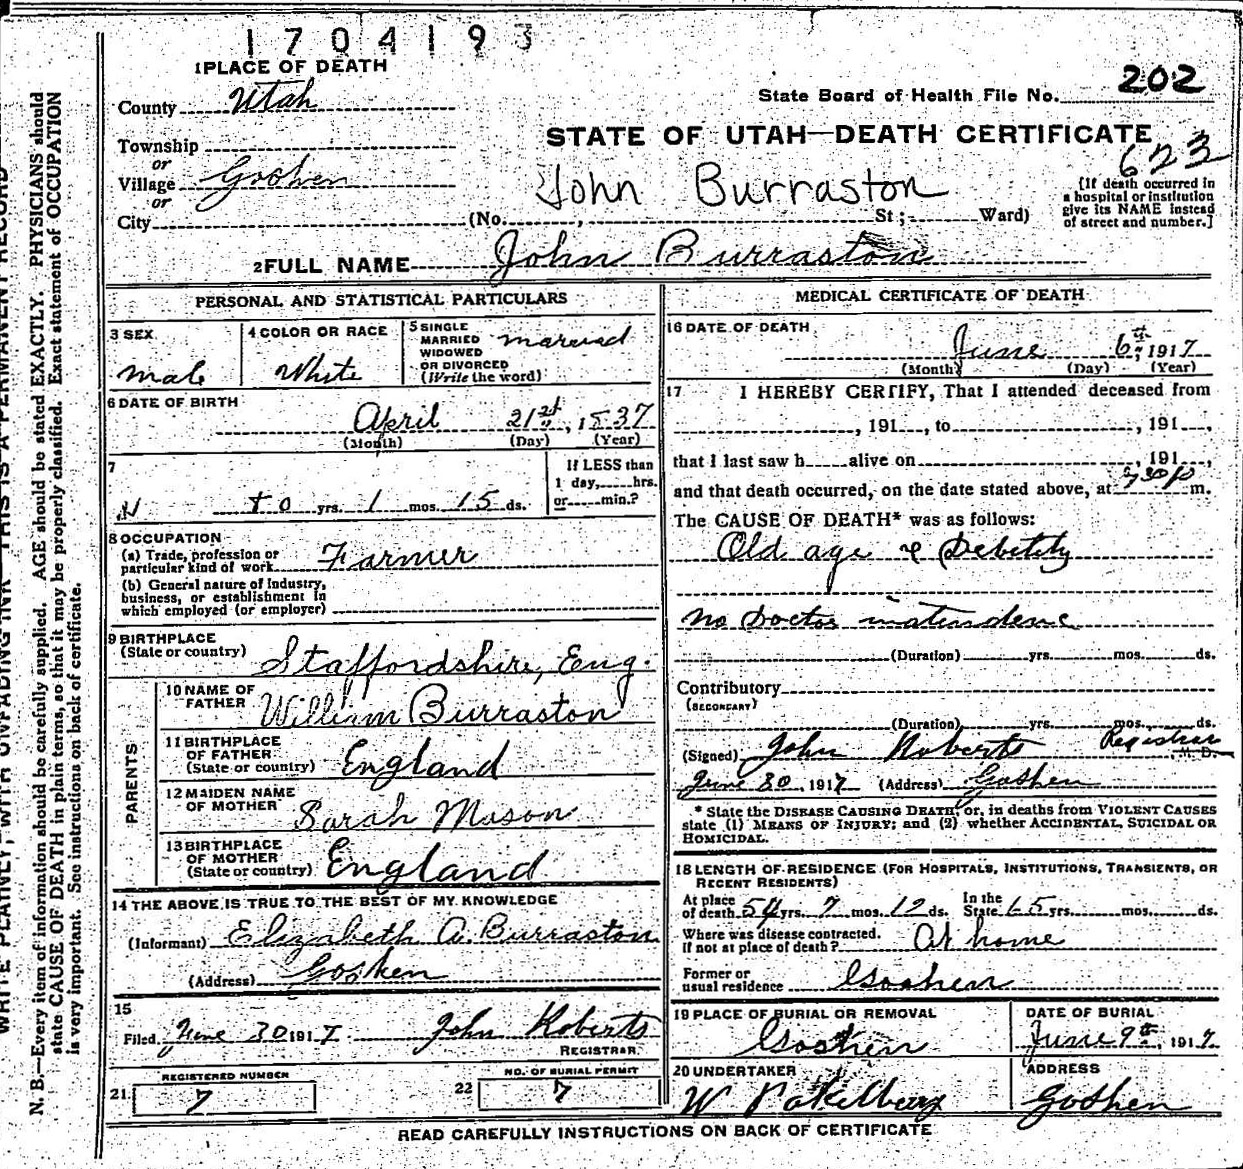 1704193
1 PLACE OF DEATH
County Utah
State Board of Health File No. 202
STATE OF UTAH—DEATH CERTIFICATE
623
Township
or
Village Goshen
or
City
John Burraston
(No. , St; Ward)
{If death occurred in
a hospital or institution
give its NAME instead
of street and number.]
2 FULL NAME John Burraston
PERSONAL AND STATISTICAL PARTICULARS
3 SEX
male
4 COLOR OR RACE
White
5 SINGLE
MARRIED
WIDOWED
OR DIVORCED
(Write the word)
married
6 DATE OF BIRTH
April 21st, 1837
(Month) (Day) (Year)
7
yrs. 1 mos. 15 ds.
If LESS than
1 day, hrs.
or min.?
8 OCCUPATION
(a) Trade, profession or
particular kind of work Farmer
(b) General nature of Industry,
business, or establishment in
which employed (or employer)
9 BIRTHPLACE
(State or country) Staffordshire, Eng.
PARENTS
10 NAME OF
FATHER William Burraston
11 BIRTHPLACE
OF FATHER
(State or country) England
12 MAIDEN NAME
OF MOTHER Sarah Mason
13 BIRTHPLACE
OF MOTHER
(State or country) England
14 THE ABOVE IS TRUE TO THE BEST OF MY KNOWLEDGE
(Informant) Elizabeth A. Burraston
(Address) Goshen
15
Filed June 30 1917 John Roberts
REGISTRAR
REGISTERED NUMBER
21 7
NO. OF BURIAL PERMIT
22 7
MEDICAL CERTIFICATE OF DEATH
16 DATE OF DEATH
June 6th 1917
(Month) (Day) (Year)
17 I HEREBY CERTIFY, That I attended deceased from
, 191 , to , 191 ,
that I last saw h alive on , 191 ,
and that death occurred, on the date stated above, at m.
The CAUSE OF DEATH* was as follows:
Old age & Debility
no Doctor in atendenc
(Duration) yrs. mos. ds.
Contributory
(SECONDARY)
(Duration) yrs. mos. ds.
(Signed) John Roberts Registrar, M. D.
June 30, 1917 (Address) Goshen
* State the DISEASE CAUSING DEATH, or, in deaths from VIOLENT CAUSES
state (1) MEANS OF INJURY; and (2) whether ACCIDENTAL, SUICIDAL OR
HOMICIDAL.
18 LENGTH OF RESIDENCE (FOR HOSPITALS, INSTITUTIONS, TRANSIENTS, OR
RECENT RESIDENTS)
At place
of death 54 yrs. 7 mos. 12 ds.
In the
State 65 yrs. mos. ds.
Where was disease contracted.
if not at place of death? At home
Former or
usual residence Goshen
19 PLACE OF BURIAL OR REMOVAL
Goshen
DATE OF BURIAL
June 9th, 1917
20 UNDERTAKER
W
ADDRESS
Goshen
READ CAREFULLY INSTRUCTIONS ON BACK OF CERTIFICATE
WRITE PLAINLY, WITH UNFADING INK—THIS IS A PERMANENT RECORD
N. B.—Every item of information should be carefully supplied. AGE should be stated EXACTLY. PHYSICIANS should
state CAUSE OF DEATH in plain terms, so that it may be properly classified. Exact statement of OCCUPATION
is very important. See instructions on back of certificate.